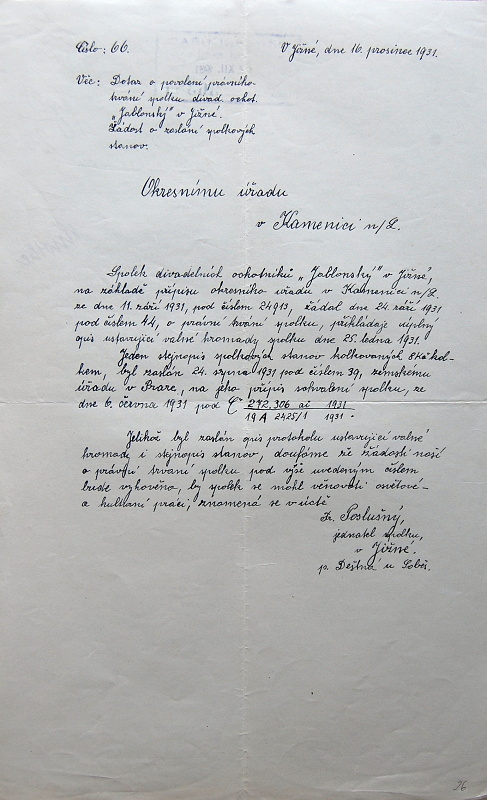 Číslo: 66.
V Jižné, dne 16. prosinec 1931.
Věc: Dotaz o povolení právního
trvání spolku divad. ochot.
„Jablonský" v Jižné.
Žádost o zaslání spolkových
stanov.
Okresnímu úřadu
v Kamenici n/L.
Spolek divadelních ochotníků „Jablonský" v Jižné,
na základě přípisu okresního úřadu v Kamenici n/L.
ze dne 11. září 1931, pod číslem 24913, žádal dne 24. září 1931
pod číslem 44, o právní trvání spolku, přikládaje úplný
opis ustavující valné hromady spolku dne 25. ledna 1931.
Jeden stejnopis spolkových stanov kolkovaných 8 Kč kol-
kem, byl zaslán 24. srpna 1931 pod číslem 39, zemskému
úřadu v Praze, na jeho přípis schválení spolku, ze
dne 6. června 1931 pod Č 272.306 ai 1931
19 A 2425/1 1931.
Jelikož byl zaslán opis protokolu ustavující valné
hromady i stejnopis stanov, doufáme že žádosti naší
o právní trvání spolku pod výše uvedeným číslem
bude vyhověno, by spolek se mohl věnovati osvětové-
a kulturní práci, znamená se v úctě
Fr. Poslušný,
jednatel spolku,
v Jižné.
p. Deštná u Soběs.
26